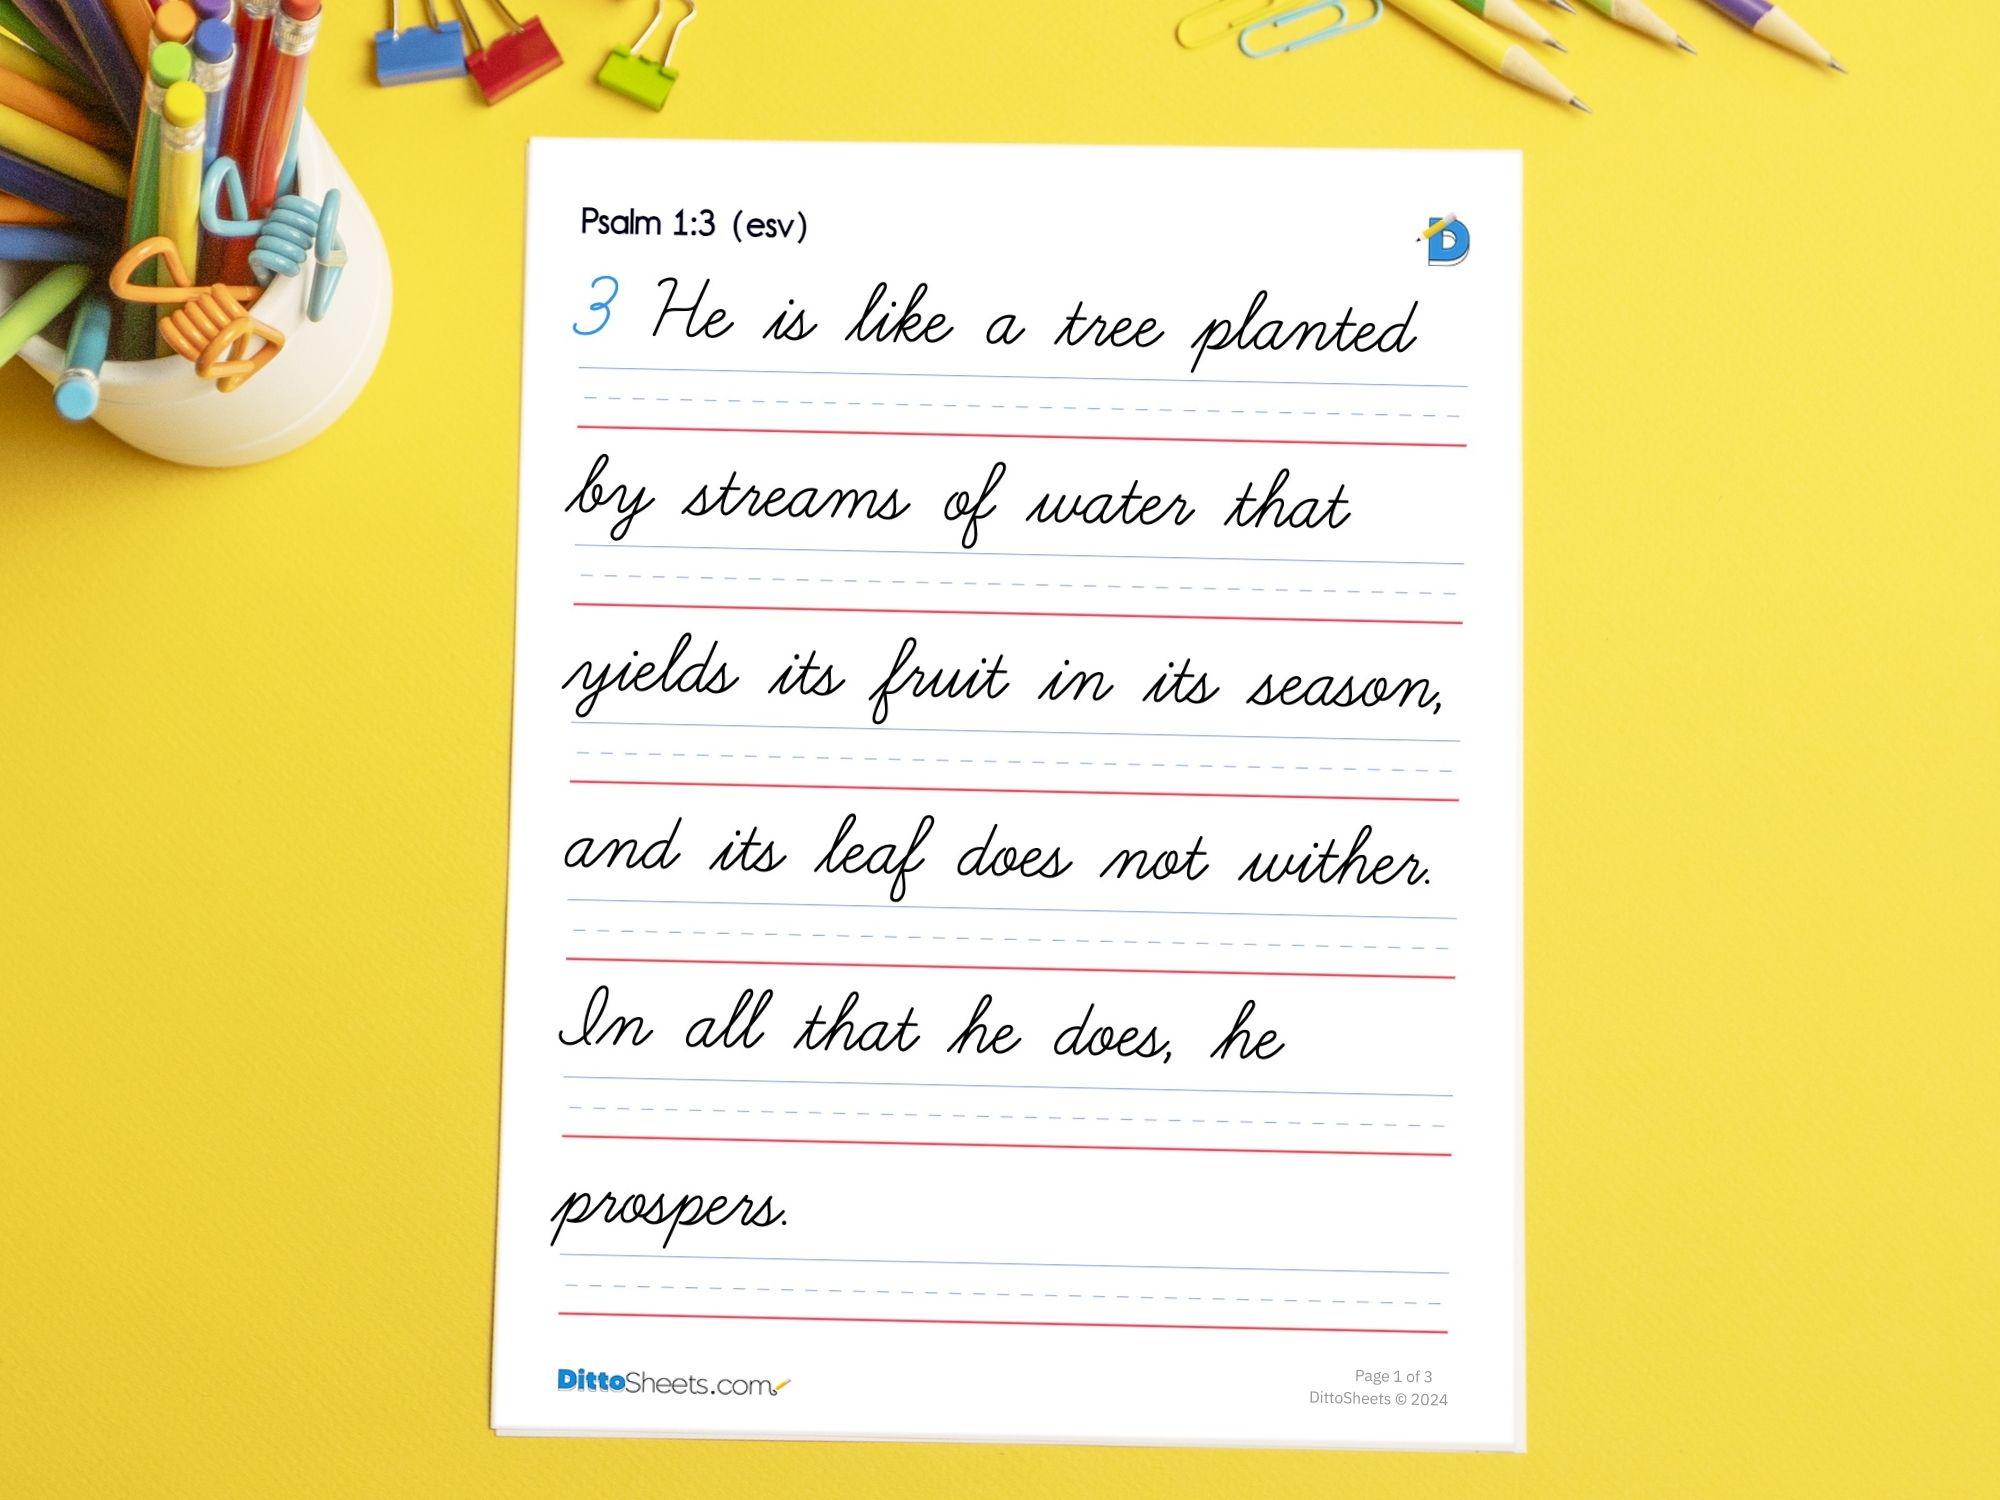 Psalm 1:3 (esv)
D
3 He is like a tree planted
by streams of water that
yields its fruit in its season,
and its leaf does not wither.
In all that he does, he
prospers.
DittoSheets.com
Page 1 of 3
DittoSheets © 2024